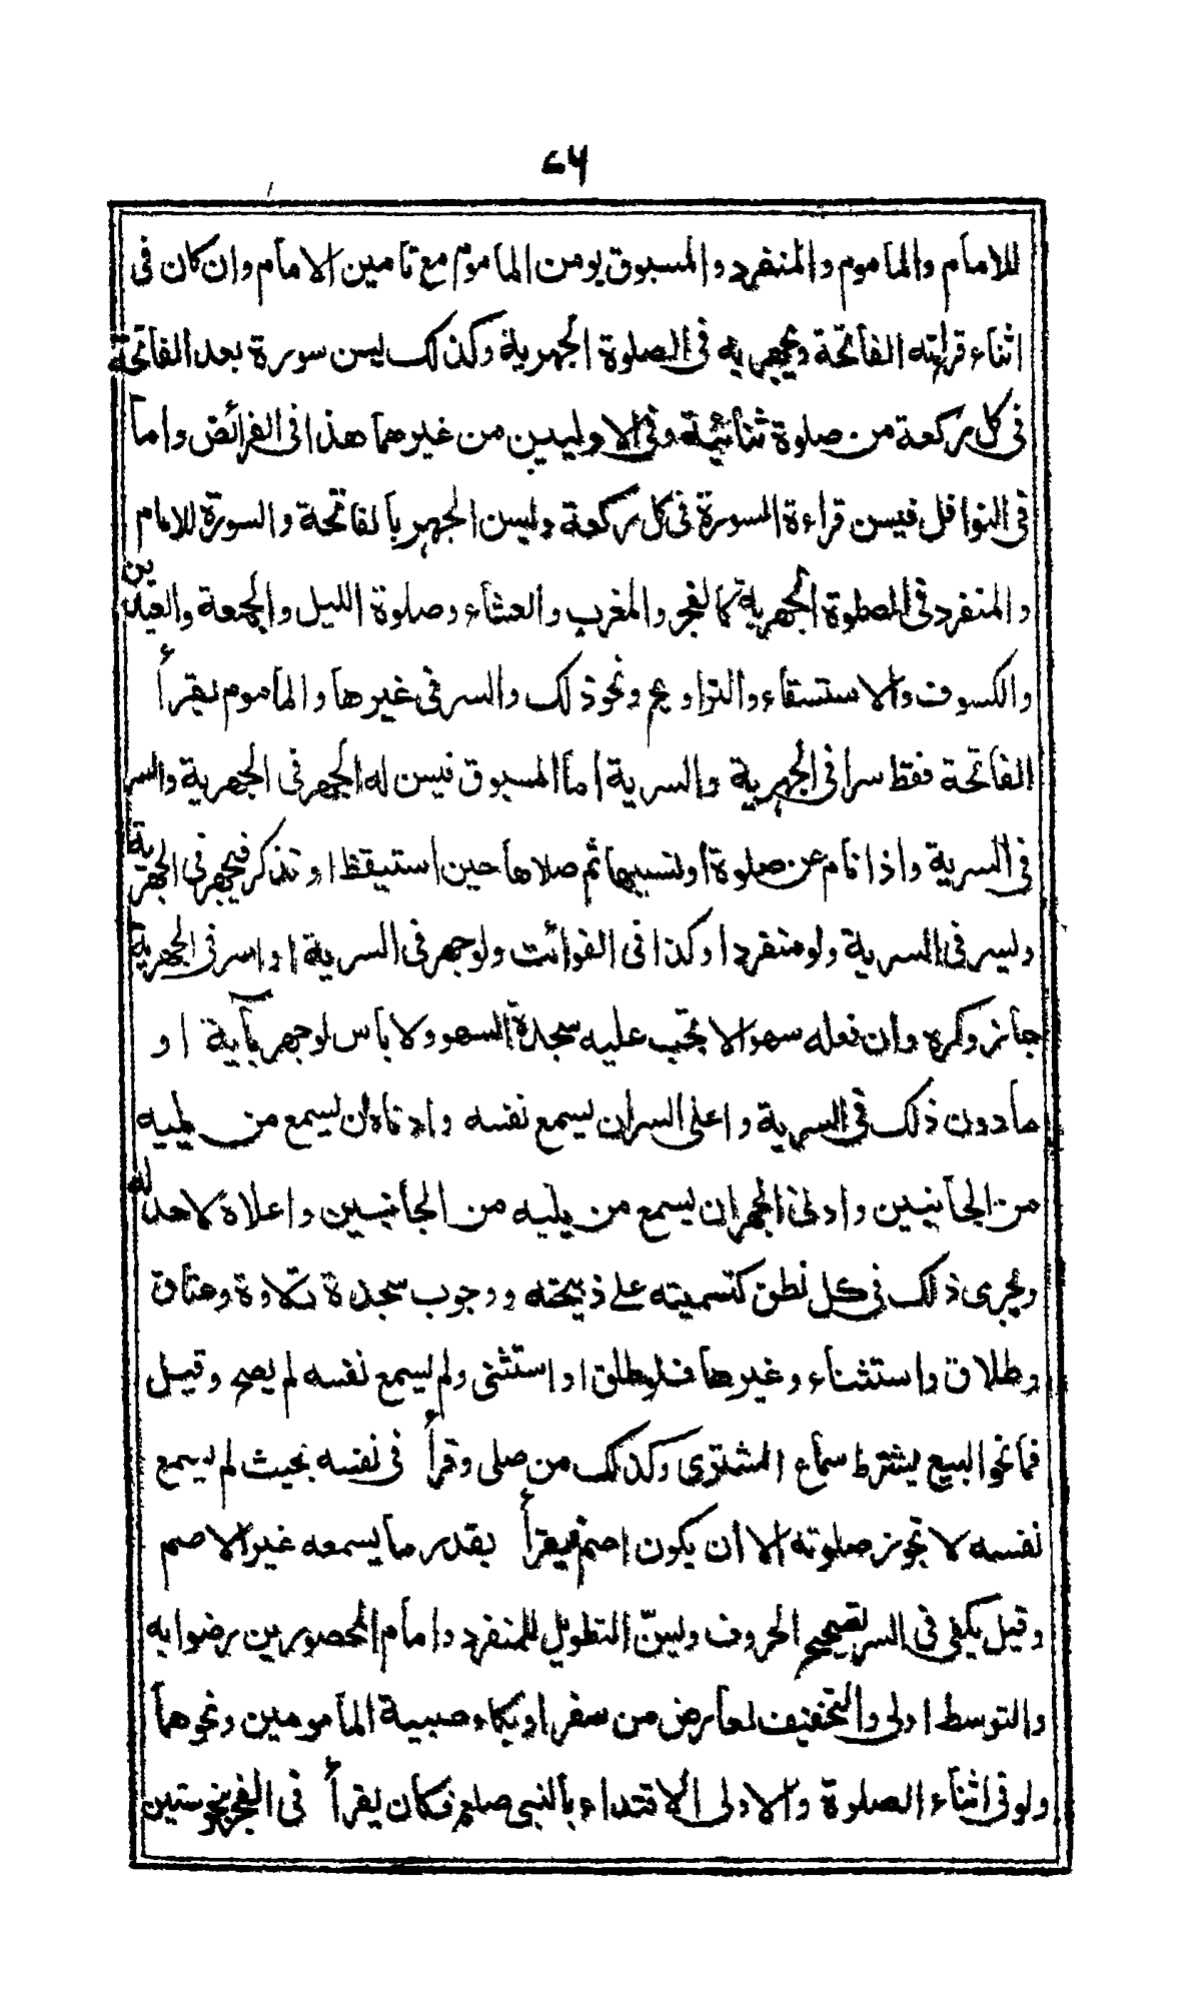 ٧٤
للامام والماموم والمنفرد والمسبوق يومن الماموم مع تامين الامام وان كان فى
اثناء قراءته الفاتحة ويجهر به فى الصلوة الجهرية وكذلك يسن سورة بعد الفاتحة
فى كل ركعة من صلوة ثنائية وفى الاوليين من غيرهما هذا فى الفرائض واما
فى النوافل فيسن قراءة السورة فى كل ركعة ويسن الجهر بالفاتحة والسورة للامام
والمنفرد فى الصلوة الجهرية كالفجر والمغرب والعشاء وصلوة الليل والجمعة والعيدين
والكسوف والاستسقاء والتراويح ونحو ذلك والسر فى غيرها والماموم يقرأ
الفاتحة فقط سرا فى الجهرية والسرية اما المسبوق فيسن له الجهر فى الجهرية والسر
فى السرية واذا نام عن صلوة او نسيها ثم صلاها حين استيقظ او تذكر فيجهر فى الجهرية
ويسر فى السرية ولو منفردا وكذا فى الفوائت ولو جهر فى السرية او اسر فى الجهرية
جائز وكره وان فعله سهوا لا تجب عليه سجدة السهو ولا باس لو جهر بآية او
مادون ذلك فى السرية واعلى السر ان يسمع نفسه وادناه ان يسمع من يليه
من الجانبين وادنى الجهر ان يسمع من يليه من الجانبين واعلاه لا حد له
ويجرى ذلك فى كل نطق كتسميته على ذبيحته ووجوب سجدة تلاوة وعتاق
وطلاق واستثناء وغيرها فلو طلق او استثنى ولم يسمع نفسه لم يصح وقيل
فما نحو البيع يشترط سماع المشترى وكذلك من صلى وقرأ فى نفسه بحيث لم يسمع
نفسه لا تجوز صلوته الا ان يكون اصم فيقرأ بقدر ما يسمعه غير الاصم
وقيل يكفى فى السر تصحيح الحروف ويسنّ التطويل للمنفرد وامام المحصورين رضوا به
والتوسط اولى والتخفيف لعارض من سفر او بكاء صبية المامومين ونحوهما
ولو فى اثناء الصلوة والاولى الاقتداء بالنبى صلعم فكان يقرأ فى الفجر بنحو ستين